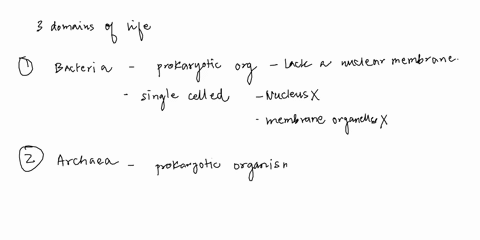 3 domains of life
① Bacteria - prokaryotic org - Lack a nuclear membrane.
- single celled - Nucleus X
- membrane organelles X
② Archaea - prokaryotic organism